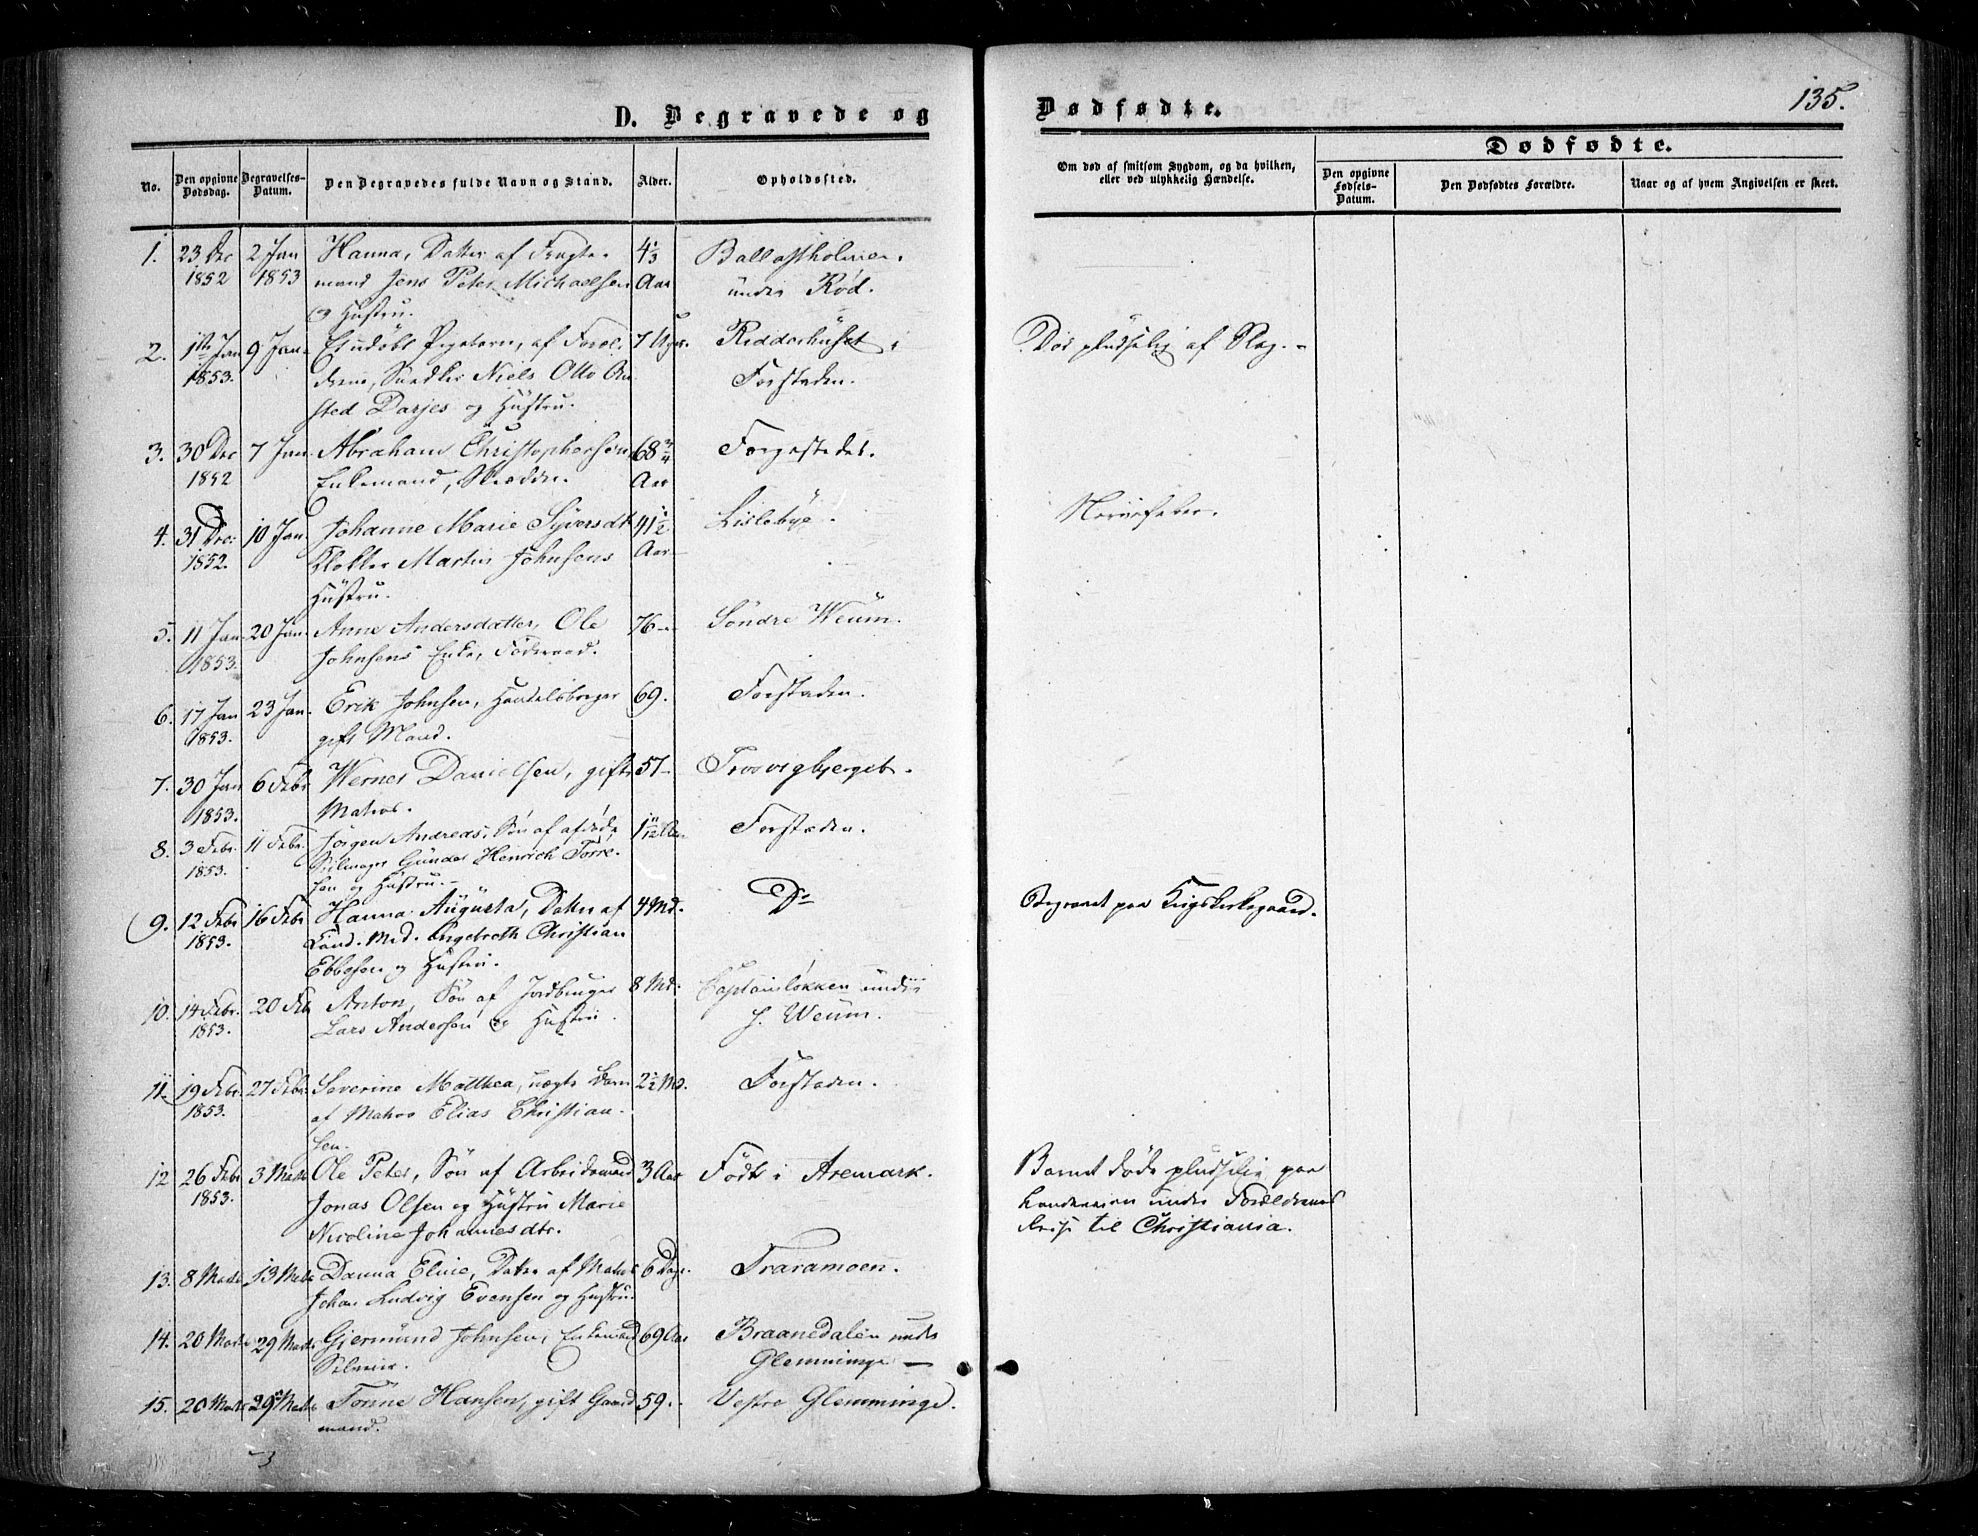 135.
D. Begravede og Dødfødte.
Dødfødte.
No.
Den opgivne Dødsdag.
Begravelses-Datum.
Den Begravedes fulde Navn og Stand.
Alder.
Opholdssted.
Om død af smitsom Sygdom, og da hvilken, eller ved ulykkelig Hændelse.
Den opgivne Fødsels-Datum.
Den Dødfødtes Forældre.
Naar og af hvem Angivelsen er skeet.
1. 23 Dec 2 Jan Hanna, Datter af Fragte- 4 1/3
1852 1853 mand Jens Peter Michaelsen Aar under Rød.
og Hustru.
2. 1ste Jan 9 Jan Udøbt Pigebarn, af Foræl- 7 Uger. Ridderhuset Død pludselig af Slag.
1853. drene, Sadler Niels Otto Forstaden.
sted Darjes og Hustru.
3. 30 Dec 7 Jan Abraham Christophersen 68 3/4
1852 Enkemand, Skrædder. Aar
4. 31 Dec: 10 Jan Johanne Marie Syversdt 41 1/2 Lislebye. Nervefeber.
1852. Martin Johnsens Aar
Hustru.
5. 11 Jan 20 Jan Anne Andersdatter, Ole 76 Søndre Weum.
1853. Johnsens Enke, Føderaad.
6. 17 Jan 23 Jan. Erik Johnsen, Handelsborger 69. Forstaden.
1853. gift Mand.
7. 30 Jan 6 Febr Werner Danielsen, gift 57 Trosvigbjerget.
1853. Matros.
8. 3 Febr. 11 Febr. Jørgen Andreas, Søn af afdøde 1 11/12 Aar Forstaden.
1853. Seilmager Gunder Henrich Torre-
sen og Hustru.
9. 12 Febr 16 Febr Hanna Augusta, Datter af 4 Md. Do Begravet paa Krigskirkegaard.
1853. Cand. Med. Engebreth Christian
Ebbesen og Hustru.
10. 14 Febr. 20 Feb Anton, Søn af Jordbruger 8 Md. Captainløkken under
1853. Lars Andersen og Hustru. S. Weum.
11. 19 Febr. 27 Febr. Severine Mathea, uægte Barn 2 1/2 Md. Forstaden.
1853. af Matros Elias Christian-
sen.
12. 26 Febr 3 Marts Ole Peter, Søn af Arbeidsmand 3 Aar Født i Aremark. Barnet døde pludselig paa
1853. Jonas Olsen og Hustru Marie Landeveien under Forældrenes
Nicoline Johannesdtr. Reise til Christiania.
13. 8 Marts 13 Marts Danna Eline, Datter af Matros 6 Dage. Traramoen.
Johan Ludvig Evensen og Hustru.
14. 20 Marts 29 Marts Gjermund Johnsen, Enkemand 69 Aar Braanedalen under
Glemminge
15. 20 Marts 29 Marts Tønne Hansen, gift Gaard 59. Vestre Glemminge.
mand.